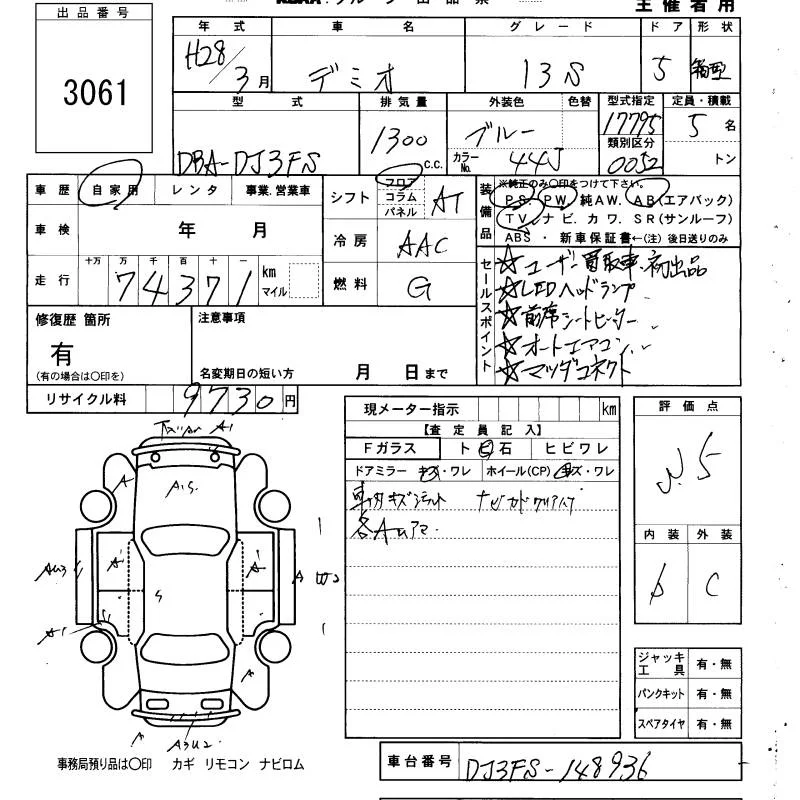 出品番号
3061
主催者用
年式 車名 グレード ドア 形状
H28/3月 デミオ 13S 5 箱型
型式 排気量 外装色 色替 型式指定 定員・積載
DBA-DJ3FS 1300 c.c. ブルー 17795 5名
カラーNo. 44J 類別区分 0052 トン
車歴 自家用 レンタ 事業.営業車
車検 年 月
走行 十万 万 千 百 十 一 km マイル
74371
シフト フロア コラム パネル AT
冷房 AAC
燃料 G
装備品 ※純正のみ○印をつけて下さい。
PS. PW. 純AW. AB(エアバック)
TV. ナビ. カワ. SR(サンルーフ)
ABS ・ 新車保証書←(注) 後日送りのみ
セールスポイント
☆ユーザー買取車.初出品
☆LEDヘッドランプ
☆前席シートヒーター
☆オートエアコン
☆マツダコネクト
修復歴 箇所
有
(有の場合は○印を)
注意事項
名変期日の短い方 月 日まで
リサイクル料 9730円
現メーター指示 km
【査定員記入】
Fガラス ト ビ 石 ヒビワレ
ドアミラー キズ・ワレ ホイール(CP) キズ・ワレ
各AUアマ
評価点
内装 外装
C
A1
A.S.
A
A'
A'
AU3
A
S
A1
A3U2
ジャッキ工具 有・無
パンクキット 有・無
スペアタイヤ 有・無
事務局預り品は○印 カギ リモコン ナビロム
車台番号 DJ3FS-148936